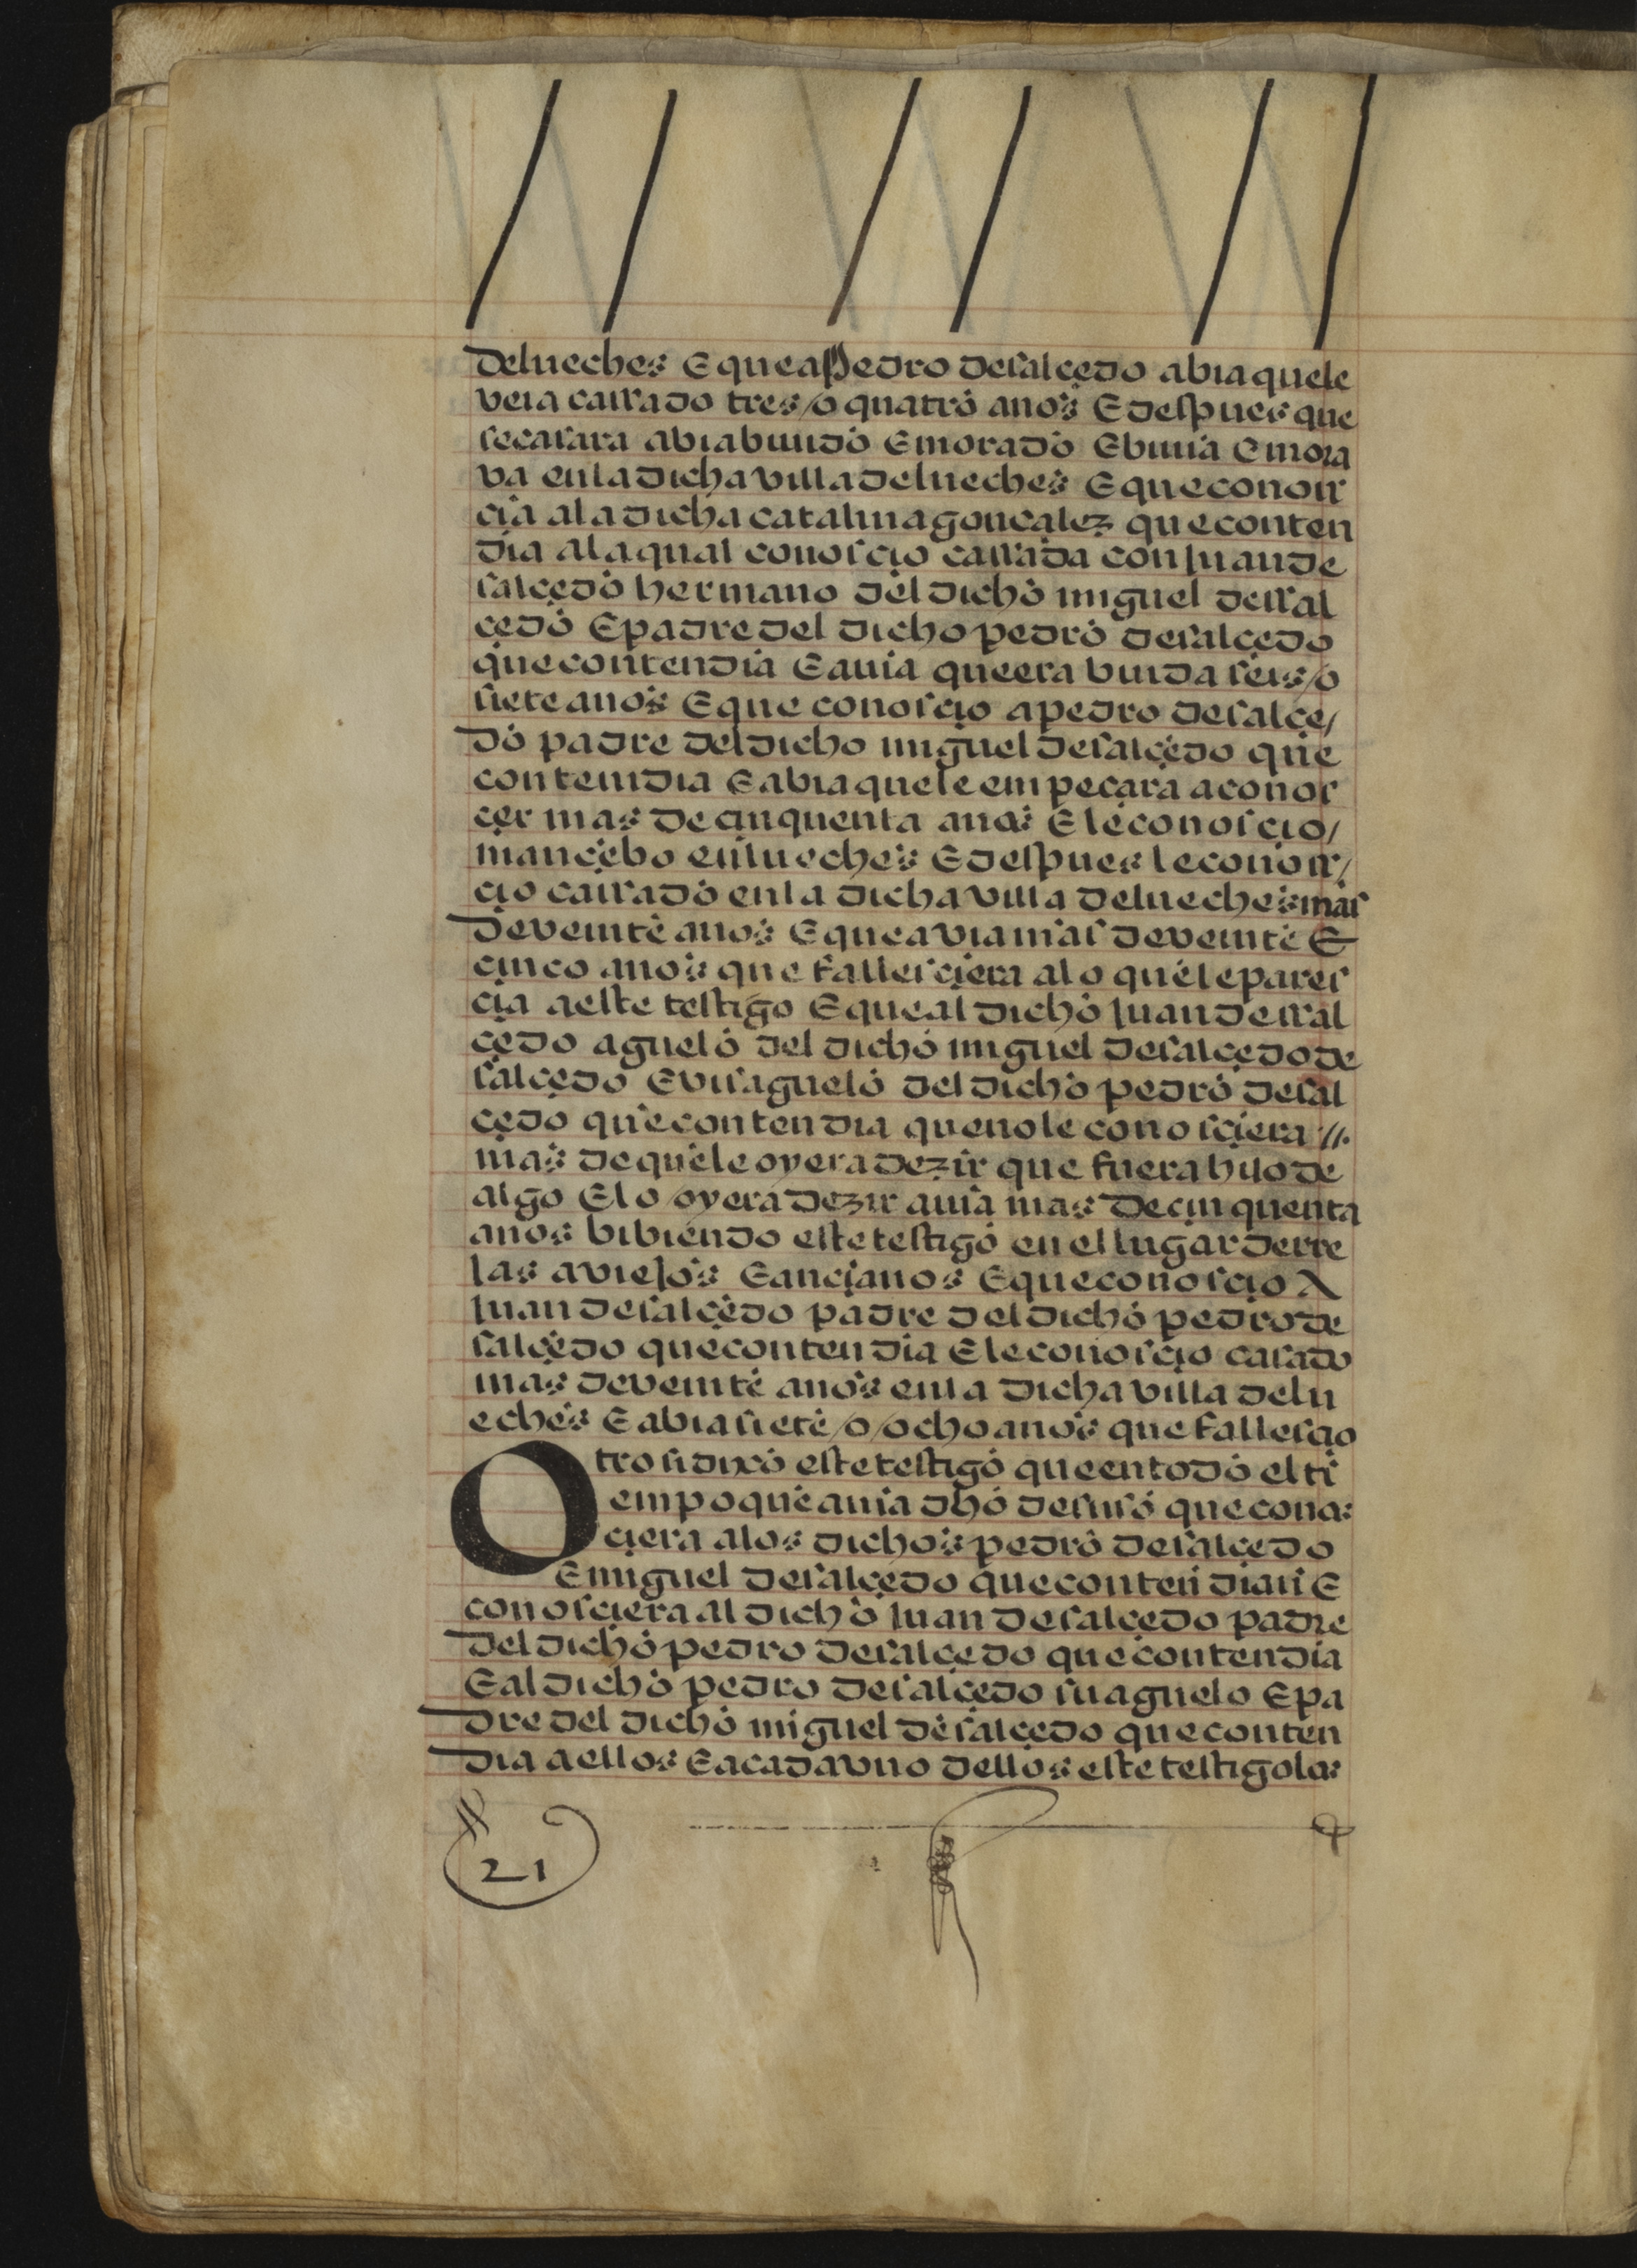 de lueches E que a pedro de salçedo abia que le
veia cassado tres / o quatro anos E despues que
se casara abia buiudo E morado E buiia E mora
va en la dicha villa de lueches E que conoss
çia a la dicha catalina gonçalez que conten
dia a la qual conosçio cassada con juan de
salçedo hermano del dicho miguel de ssal
çedo E padre del dicho pedro de salçedo
que contendia E auia que era buida seis / o
siete anos E que conosçio a pedro de salçe /
do padre del dicho miguel de salçedo que
contendia E abia que le empeçara a conos
çer mas de çinquenta anos E le conosçio /
mançebo en lueches E despues le conoss /
çio cassado en la dicha villa de lueches mas
de veinte anos E que avia mas de veinte E
çinco anos que fallesçiera a lo que le pares
çia a este testigo E que al dicho juan de ssal
çedo aguelo del dicho miguel de salçedo de
salçedo E visaguelo del dicho pedro de sal
çedo que contendia que no le conosçiera //.
mas de que le oyera dezir que fuera hijo de
algo E lo oyera dezir auia mas de çinquenta
anos bibiendo este testigo en el lugar de rre
las a viejos E ançianos E que conosçio A
juan de salçedo padre del dicho pedro de
salçedo que contendia E le conosçio casado
mas de veinte anos en la dicha villa de lu
eches E abia siete / o / ocho anos que fallesçio
Otro si dixo este testigo que en todo el ti
empo que auia dho de suso que conos
çiera a los dichos pedro de salçedo
E miguel de salçedo que contendian E
conosçiera al dicho juan de salçedo padre
del dicho pedro de salçedo que contendia
E al dicho pedro de salçedo su aguelo E pa
dre del dicho miguel de salçedo que conten
dia a ellos E a cada vno dellos este testigo los
21